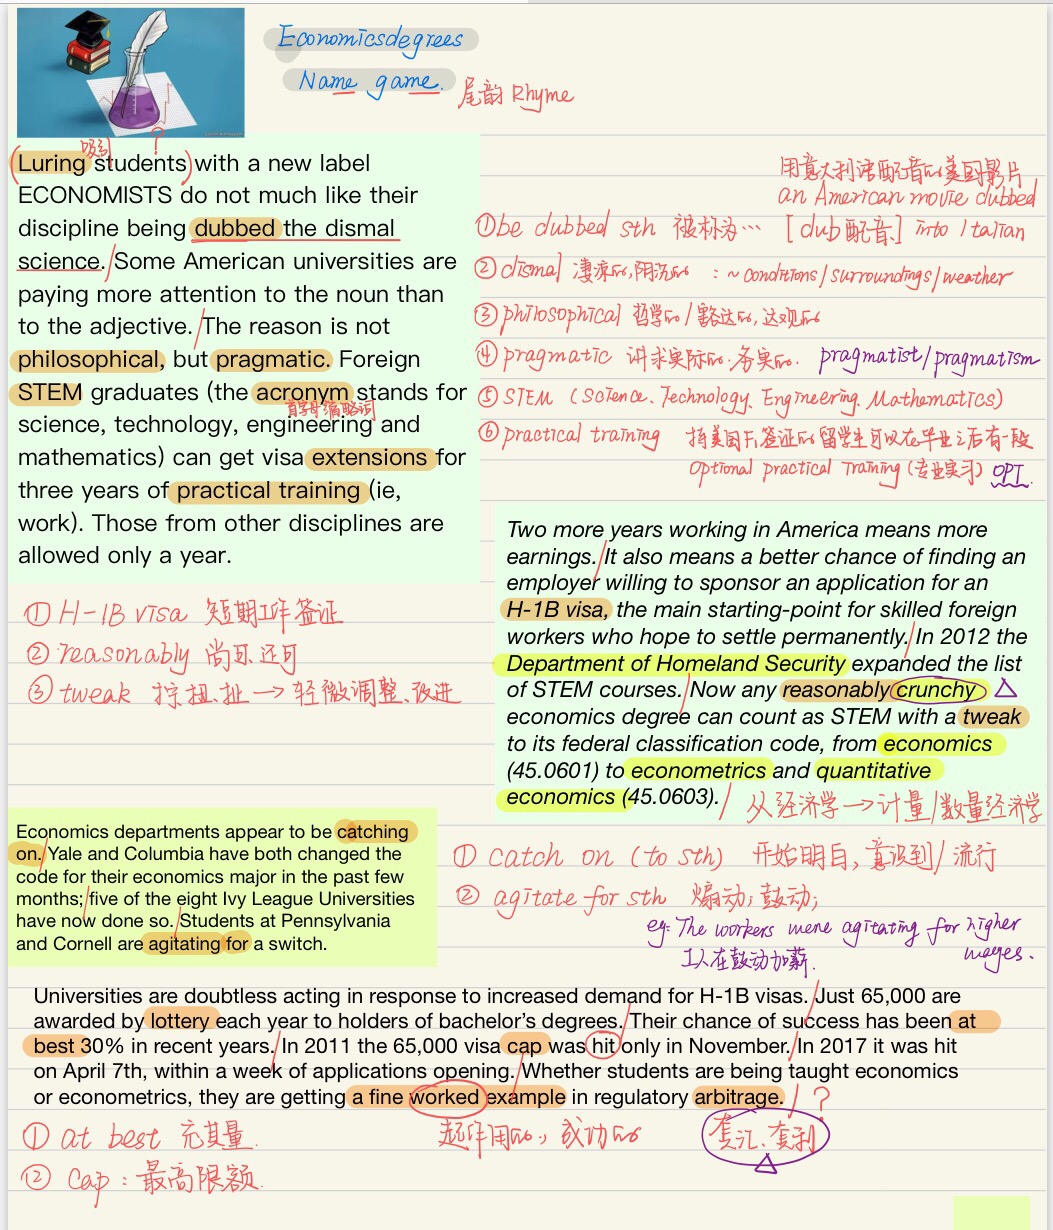 Economicsdegrees
Name game.
尾韵 Rhyme
吸引
?
(Luring students) with a new label
ECONOMISTS do not much like their
discipline being dubbed the dismal
science. / Some American universities are
paying more attention to the noun than
to the adjective. / The reason is not
philosophical, but pragmatic. Foreign
STEM graduates (the acronym stands for
首字母缩略词
science, technology, engineering and
mathematics) can get visa extensions for
three years of practical training (ie,
work). Those from other disciplines are
allowed only a year.
用意大利语配音的美国影片
an American movie dubbed
①be dubbed sth 被称为… [dub配音] into Italian
②dismal 凄凉的,阴沉的 : ~ conditions/surroundings/weather
③philosophical 哲学的/豁达的,达观的
④pragmatic 讲求实际的.务实的. pragmatist/pragmatism
⑤STEM (Science、Technology、Engineering、Mathematics)
⑥practical training 持美国F1签证的留学生可以在毕业之后有一段
Optional practical Training (专业实习) OPT.
Two more years working in America means more
earnings. / It also means a better chance of finding an
employer willing to sponsor an application for an
H-1B visa, the main starting-point for skilled foreign
workers who hope to settle permanently. / In 2012 the
Department of Homeland Security expanded the list
of STEM courses. / Now any reasonably crunchy △
economics degree can count as STEM with a tweak
to its federal classification code, from economics
(45.0601) to econometrics and quantitative
economics (45.0603). / 从经济学→计量/数量经济学
①H-1B visa 短期工作签证
②reasonably 尚可.还可
③tweak 拧.扭.扯→轻微调整、改进
Economics departments appear to be catching
on. / Yale and Columbia have both changed the
code for their economics major in the past few
months; / five of the eight Ivy League Universities
have now done so. / Students at Pennsylvania
and Cornell are agitating for a switch.
①catch on (to sth) 开始明白,意识到/流行
②agitate for sth 煽动;鼓动;
eg: The workers were agitating for higher
wages.
工人在鼓动加薪.
Universities are doubtless acting in response to increased demand for H-1B visas. / Just 65,000 are
awarded by lottery each year to holders of bachelor's degrees. / Their chance of success has been at
best 30% in recent years. / In 2011 the 65,000 visa cap was hit only in November. / In 2017 it was hit
on April 7th, within a week of applications opening. / Whether students are being taught economics
or econometrics, they are getting a fine worked example in regulatory arbitrage. / ?
①at best 充其量. 起作用的,成功的 套汇、套利
②Cap:最高限额. △